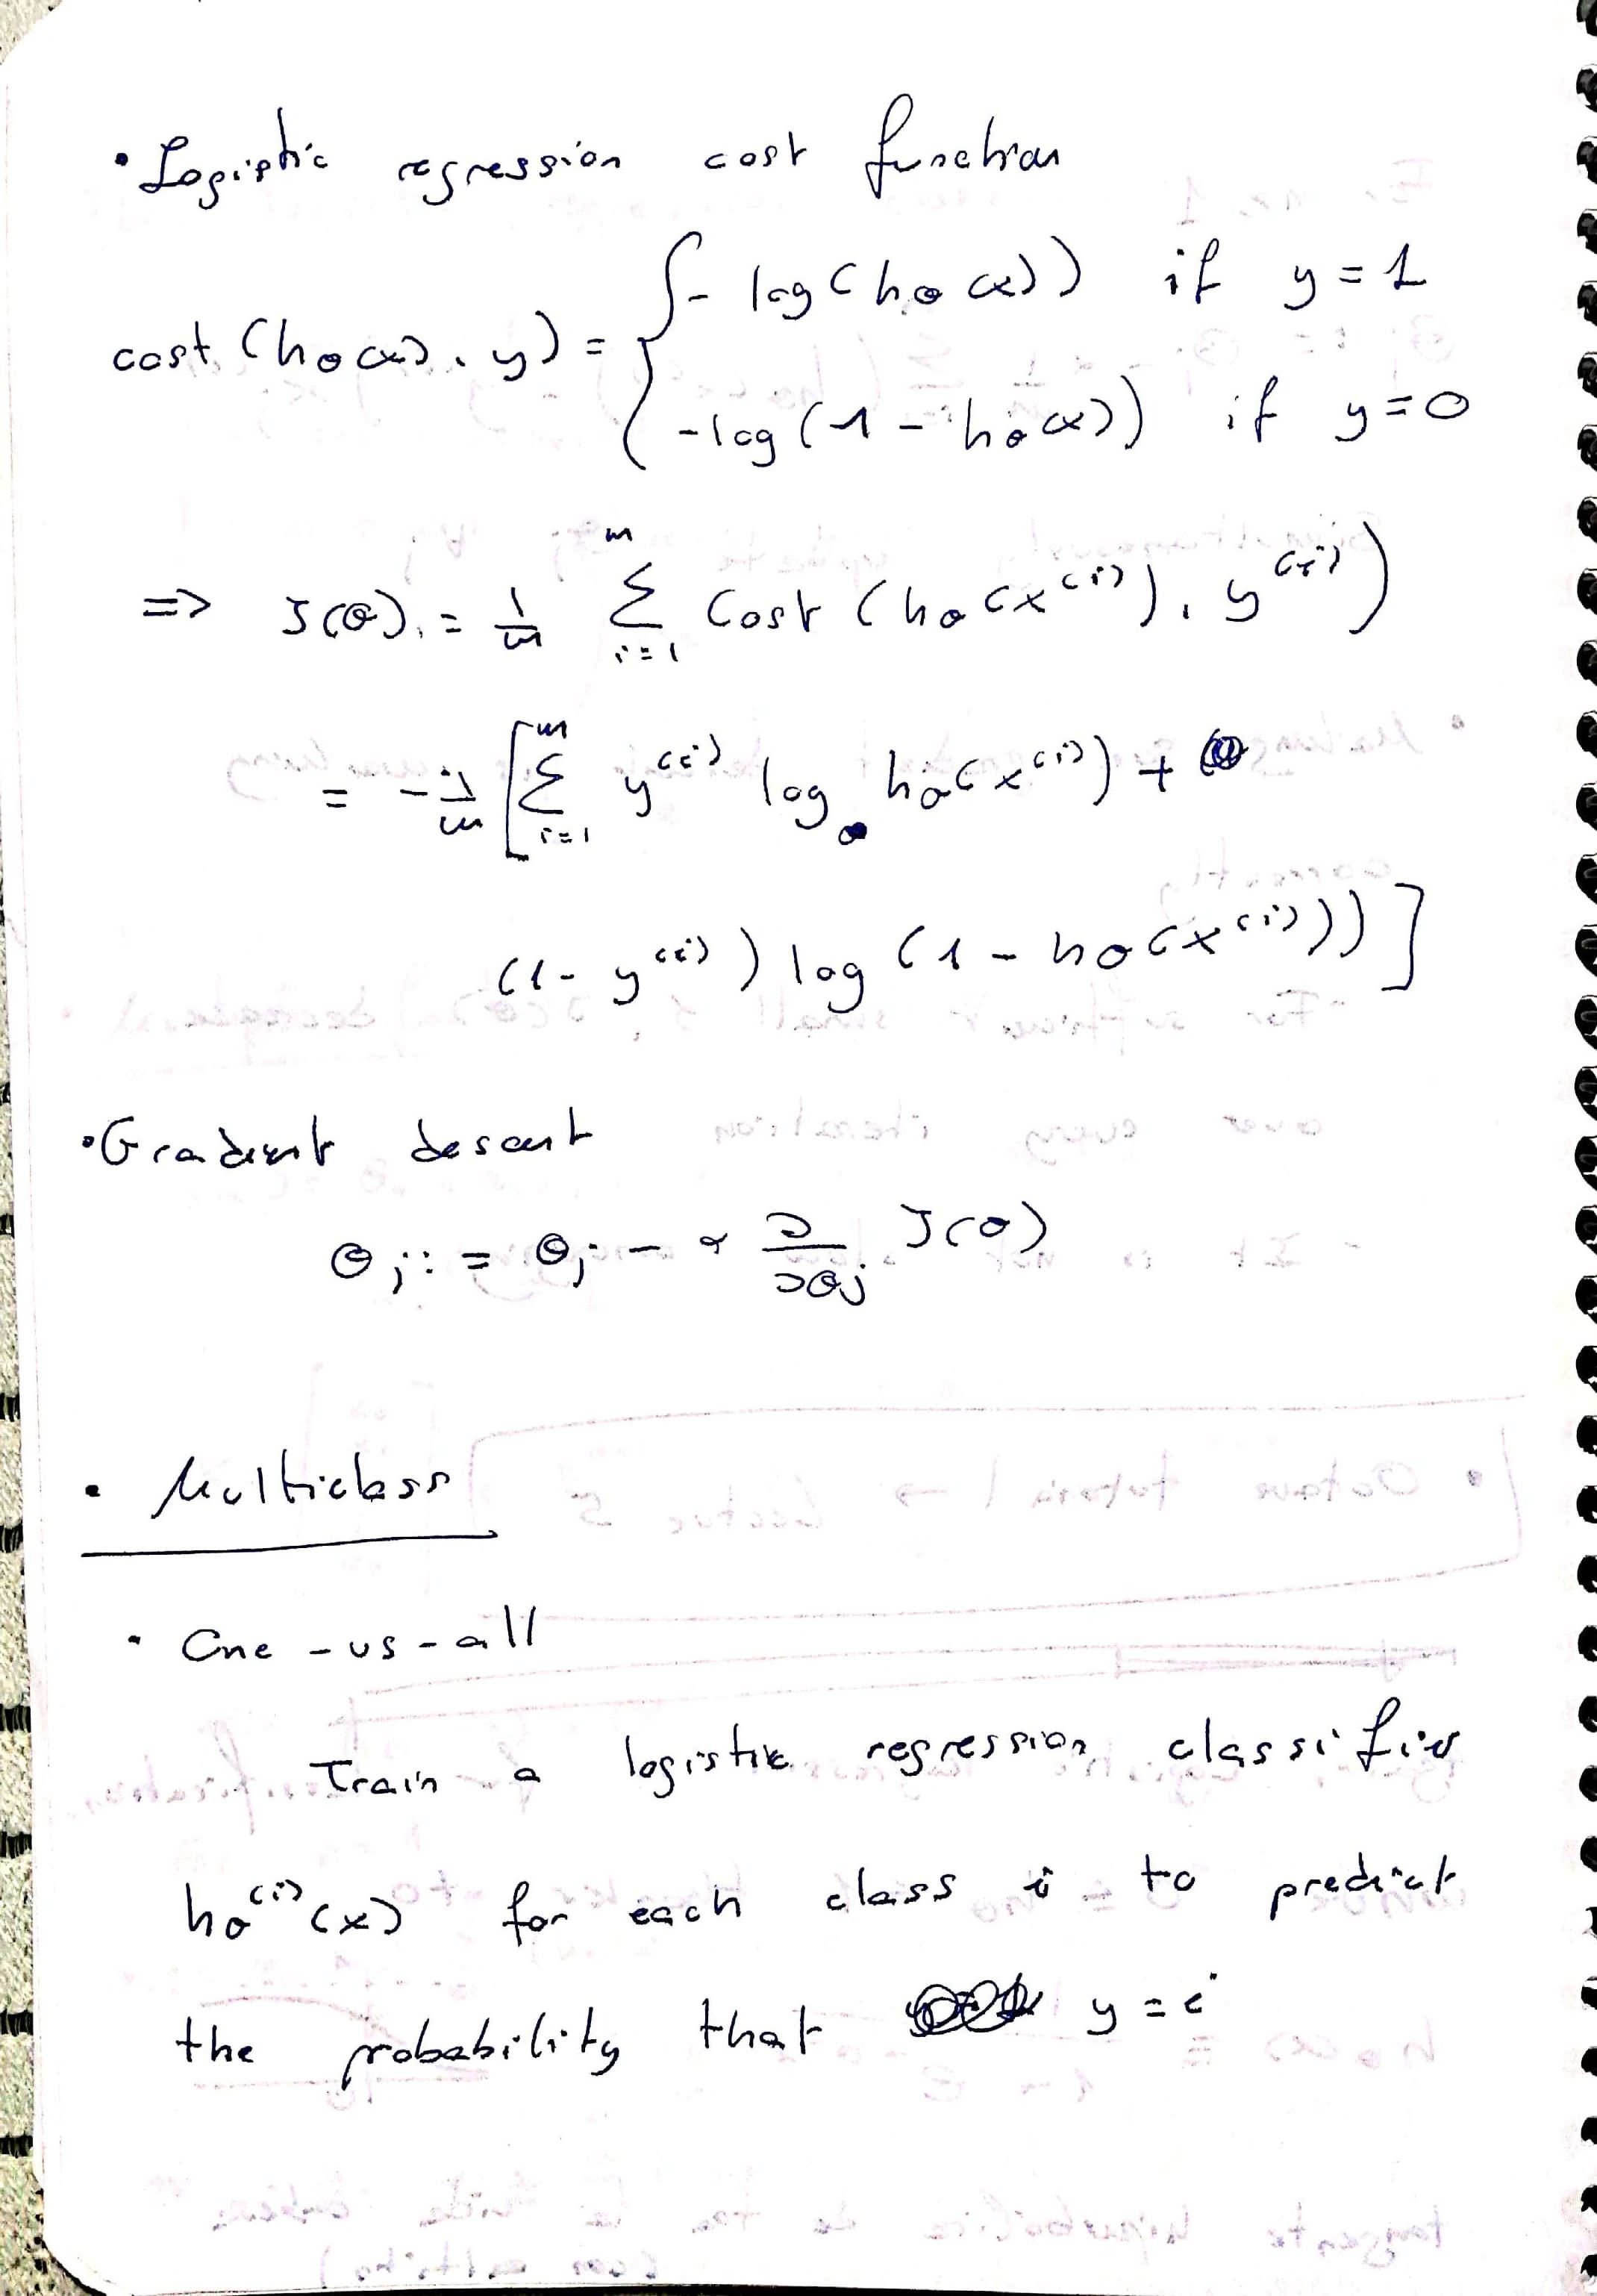 • Logistic regression cost function
cost (hθ(x), y) = { - log(hθ(x)) if y = 1
- log(1 - hθ(x)) if y = 0
=> J(θ) = 1/m Σ_{i=1}^{m} Cost (hθ(x^(i)), y^(i))
= - 1/m [ Σ_{i=1}^{m} y^(i) log hθ(x^(i)) +
(1 - y^(i)) log (1 - hθ(x^(i))) ]
• Gradient descent
θj := θj - α ∂/∂θj J(θ)
• Multiclass
• One - vs - all
Train a logistic regression classifier
hθ^(i)(x) for each class i to predict
the probability that y = i